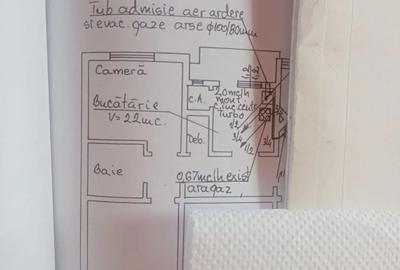 Tub admisie aer ardere
si evac. gaze arse φ100/80mm
Cameră
1/2
1/2
Bucătărie
V=22mc.
C.A.
2,0mc/h
mont
Turbo
1/2
3/4
1/2
3/4
Deb.
Baie
0,67mc/h exist
aragaz